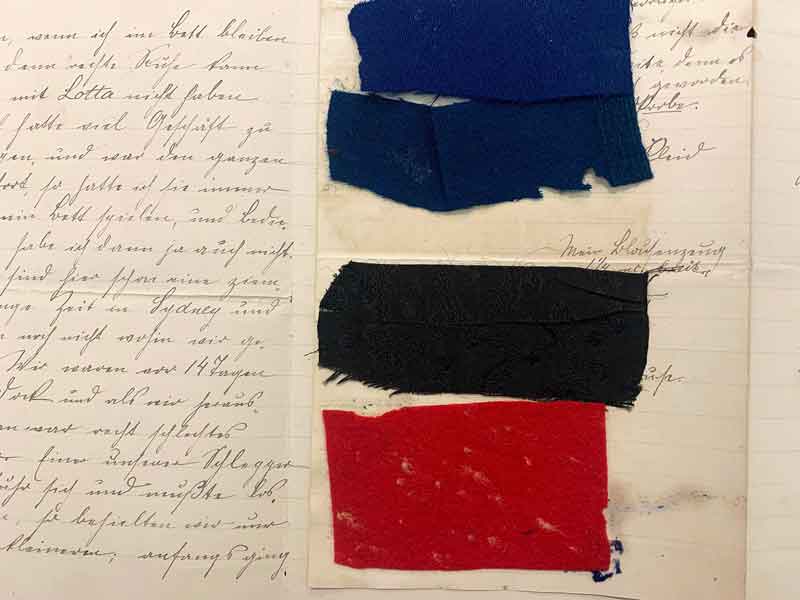 wenn ich im Bett bleiben
denn rechte Ruhe kann
mit Lotta nicht haben
hatte viel Geschäft zu
und war den ganzen
fort, so hatte ich sie immer
Bett spielen, und Bedie-
habe ich dann ja auch nicht.
sind hier schon eine ziem-
Zeit in Sydney und
noch nicht wohin wir ge-
Wir waren vor 14 Tagen
Dock und als wir heraus-
war recht schlechtes
Einer unserer Schlepper
sich und mußte los-
so behielten wir nur
kleineren; anfangs ging
nicht die
denn es
geworden
Kleid
Mein Blousenzeug